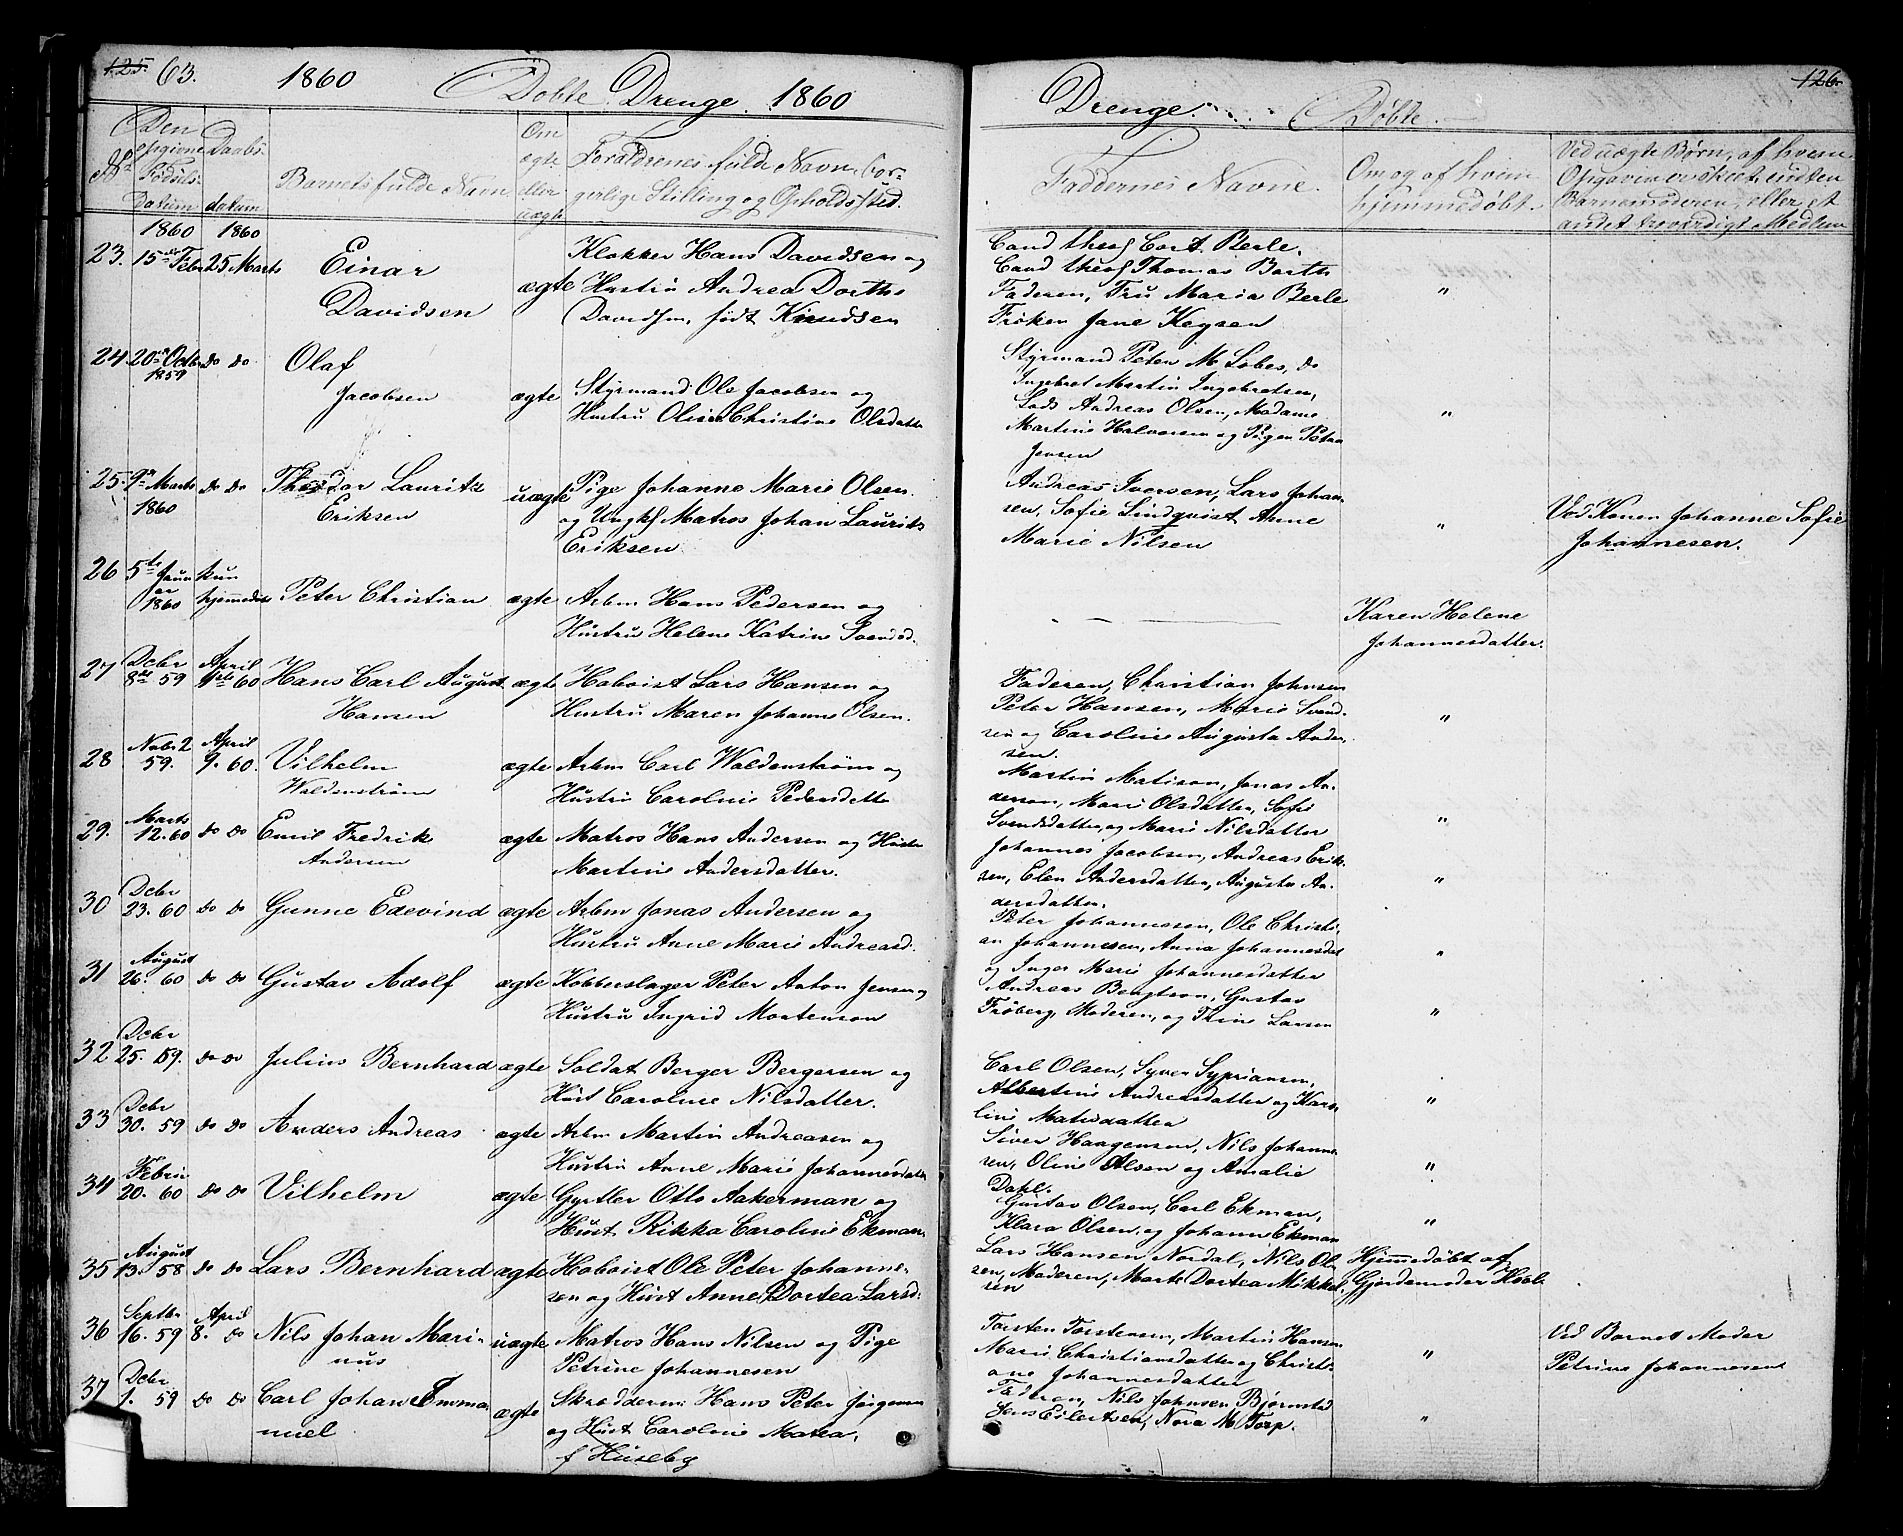 125. 63. 1860 Døbte Drenge. 1860
No Den opgivne Fødsels-datum
Daabs-datum
Barnets fulde Navn
Om ægte eller uægte
Forældrenes fulde Navn, borgerlige Stilling og Opholdssted.
1860 1860
23. 15de Febr 25 Marts Einar
Davidsen
ægte
Klokker Hans Davidsen og
Hustru Andrea Dorthe
Davidsen, født Knudsen
24. 20de Octbr 1859 do do Olaf
Jacobsen
ægte
Styrmand Ole Jacobsen og
Hustru Oline Christine Olsdatter
25. 9de Marts 1860 do do Theodor Lauritz
Eriksen
uægte
Pige Johanne Marie Olsen
og Ungkf Matros Johan Laurits
Eriksen
26 5te Januar 1860 kun hjemmedøbt Peter Christian ægte
Arbm Hans Pedersen og
Hustru Helene Katrine Svendsd.
27 Dcbr 8de 59 April 60 Hans Carl August
Hansen
ægte
Hoboist Lars Hansen og
Hustru Maren Johanne Olsen.
28 Nvbr 2 59. April 9. 60. Vilhelm
Waldenstrøm
ægte
Arbm Carl Waldenstrøm og
Hustru Caroline Pedersdatter
29. Marts 12. 60 do do Emil Fredrik
Andersen
ægte
Matros Hans Andersen og Hustru
Martine Andersdatter.
30 Dcbr 23. 60 do do Gunne Edevind ægte
Arbm Jonas Andersen og
Hustru Anne Marie Andreasd.
31 August 26. 60 do do Gustav Adolf ægte
Kobberslager Peter Anton Jensen og
Hustru Ingrid Mortenson
32 Dcbr 25. 59. do do Julius Bernhard ægte
Soldat Berger Bergersen og
Hust Caroline Nilsdatter.
33 Dcbr 30. 59 do do Anders Andreas ægte
Arbm Martin Andreasen og
Hustru Anne Marie Johannesdatter
34 Febru 20. 60 do do Vilhelm ægte
Gyrtler Otto Aakerman og
Hust Rikka Caroline Ekman.
35 August 13. 58 do do Lars Bernhard ægte
Hoboist Ole Peter Johanne-
sen og Hust Anne Dortea Larsd.
36 Septbr 16. 59 April 8. do Nils Johan Mari-
nus
uægte
Matros Hans Nilsen og Pige
Petrine Johannesen
37 Dcbr 1. 59 do do Carl Johan Emma
nuel
ægte
Skrædderm: Hans Peter Jørgensen
og Hust Caroline Matea,
f Huseby
Drenge. Døbte. 126.
Faddernes Navne.
Om og af hvem hjemmedøbt.
Ved uægte Børn, af hvem Opgaven er skeet, enten Barnemoderen, eller et andet troværdigt Medlem
Cand theol Cort. Berle.
Cand theol Thomas Barth
Faderen, Fru Maria Berle "
Frøken Jane Keysen
Styrmand Peter M Lobes, do
Ingebret Martin Ingebretsen,
Lods Andreas Olsen, Madame "
Martine Halvorsen og Pigen Petra
Jensen
Andreas Iversen, Lars Johan-
sen, Sofie Lindqvist Anne "
Marie Nilsen
Ved Konen Johanne Sofie
Johannesen.
Karen Helene
Johannesdatter.
Faderen, Christian Johnsen
Peter Hansen, Marie Svend- "
sen og Caroline Augusta Ander-
sen.
Martin Matison, Jonas An-
derson, Mari Olsdatter, Sofie
Svendsdatter, og Marie Nilsdatter "
Johannes Jacobsen, Andreas Erik-
sen, Elen Andersdatter, Augusta An- "
dersdatter.
Peter Johannesson, Ole Christi-
an Johannesen, Anna Johannesdat "
og Inger Marie Johannesdatter
Andreas Bengtson, Gustav
Frøberg, Moderen, og Trine Larsen "
Carl Olsen, Syver Sypriansen,
Albertine Andreasdatter og Karo- "
line Matisdatter
Siver Haagensen, Nils Johanne-
sen, Oline Olsen og Amalie "
Dahl.
Gustav Olsen, Carl Ekman,
Klara Olsen, og Johanne Ekman "
Lars Hansen Nordal, Nils Ol
sen, Moderen, Marte Dortea Mikkel-
sen
Hjemmedøbt af
Gjordemoder
Torsten Torstensen, Martin Hansen
Marie Christiansdatter og Christi- "
ane Johannesdatter
Ved Barnet Moder
Petrine Johannesen
Faderen, Nils Johnsen Bjørnstad
Jens Eilertsen, Nora M Torp. "